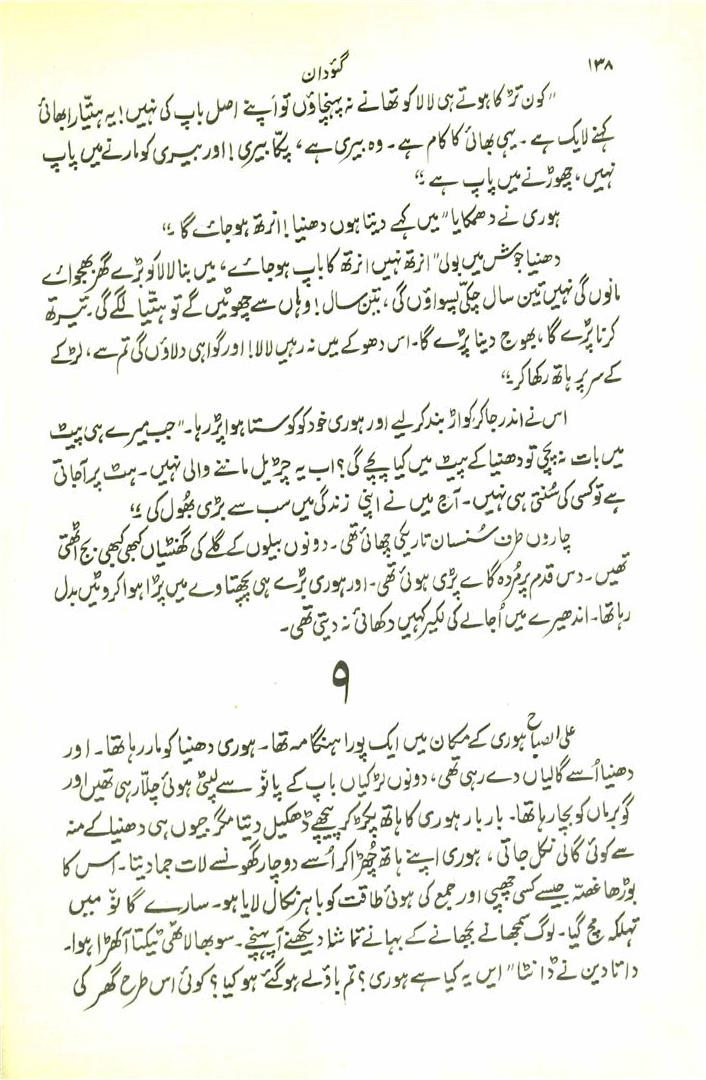 ۱۳۸
گئودان
"کون تڑکا ہوتے ہی لالا کو تھانے نہ پہنچاؤں تو اپنے اصل باپ کی نہیں! یہ ہتیّارا بھائی
کہنے لایک ہے۔ یہی بھائی کا کام ہے۔ وہ بیری ہے، پکّا بیری! اور بیری کو مارنے میں پاپ
نہیں، چھوڑنے میں پاپ ہے۔"
ہوری نے دھمکایا "میں کہے دیتا ہوں دھنیا! انرتھ ہو جائے گا۔"
دھنیا جوش میں بولی "انرتھ نہیں انرتھ کا باپ ہو جائے، میں بنا لالا کو بڑے گھر بھجوائے
مانوں گی نہیں تین سال چکّی پسواؤں گی، تین سال! وہاں سے چھوٹیں گے تو ہتّیا لگے گی۔ تیرتھ
کرنا پڑے گا، بھوج دینا پڑے گا۔ اس دھوکے میں نہ رہیں لالا! اور گواہی دلاؤں گی تم سے، لڑکے
کے سر پر ہاتھ رکھا کر۔"
اس نے اندر جا کر کواڑ بند کر لیے اور ہوری خود کو کوستا ہوا پڑ رہا۔ "جب میرے ہی پیٹ
میں بات نہ پچی تو دھنیا کے پیٹ میں کیا پچے گی؟ اب یہ چڑیل ماننے والی نہیں۔ ہٹ پر آجاتی
ہے تو کسی کی سُنتی ہی نہیں۔ آج میں نے اپنی زندگی میں سب سے بڑی بھُول کی۔"
چاروں طرف سُنسان تاریکی چھائی تھی۔ دونوں بیلوں کے گلے کی گھنٹیاں کبھی کبھی بج اٹھتی
تھیں۔ دس قدم پر مُردہ گائے پڑی ہوئی تھی۔ اور ہوری بڑے ہی پچھتاوے میں پڑا ہوا کروٹیں بدل
رہا تھا۔ اندھیرے میں اُجالے کی لکیر کہیں دکھائی نہ دیتی تھی۔
۹
علی الصباح ہوری کے مکان میں ایک پورا ہنگامہ تھا۔ ہوری دھنیا کو مار رہا تھا۔ اور
دھنیا اُسے گالیاں دے رہی تھی، دونوں لڑکیاں باپ کے پانوٓ سے لپٹی ہوئی چلّا رہی تھیں اور
گوبر ماں کو بچا رہا تھا۔ بار بار ہوری کا ہاتھ پکڑ کر پیچھے ڈھکیل دیتا مگر جیوں ہی دھنیا کے منہ
سے کوئی گالی نکل جاتی، ہوری اپنے ہاتھ چھُڑا کر اُسے دو چار گھونسے لات جما دیتا۔ اس کا
بوڑھا غصّہ جیسے کسی چھپی اور جمع کی ہوئی طاقت کو باہر نکال لایا ہو۔ سارے گانوٓ میں
تہلکہ مچ گیا۔ لوگ سمجھانے بجھانے کے بہانے تماشا دیکھنے آپہنچے۔ سوبھا لاٹھی ٹیکتا آکھڑا ہوا۔
داتادین نے ڈانٹا "ایں یہ کیا ہے ہوری؟ تم باؤلے ہو گئے ہو کیا؟ کوئی اس طرح گھر کی